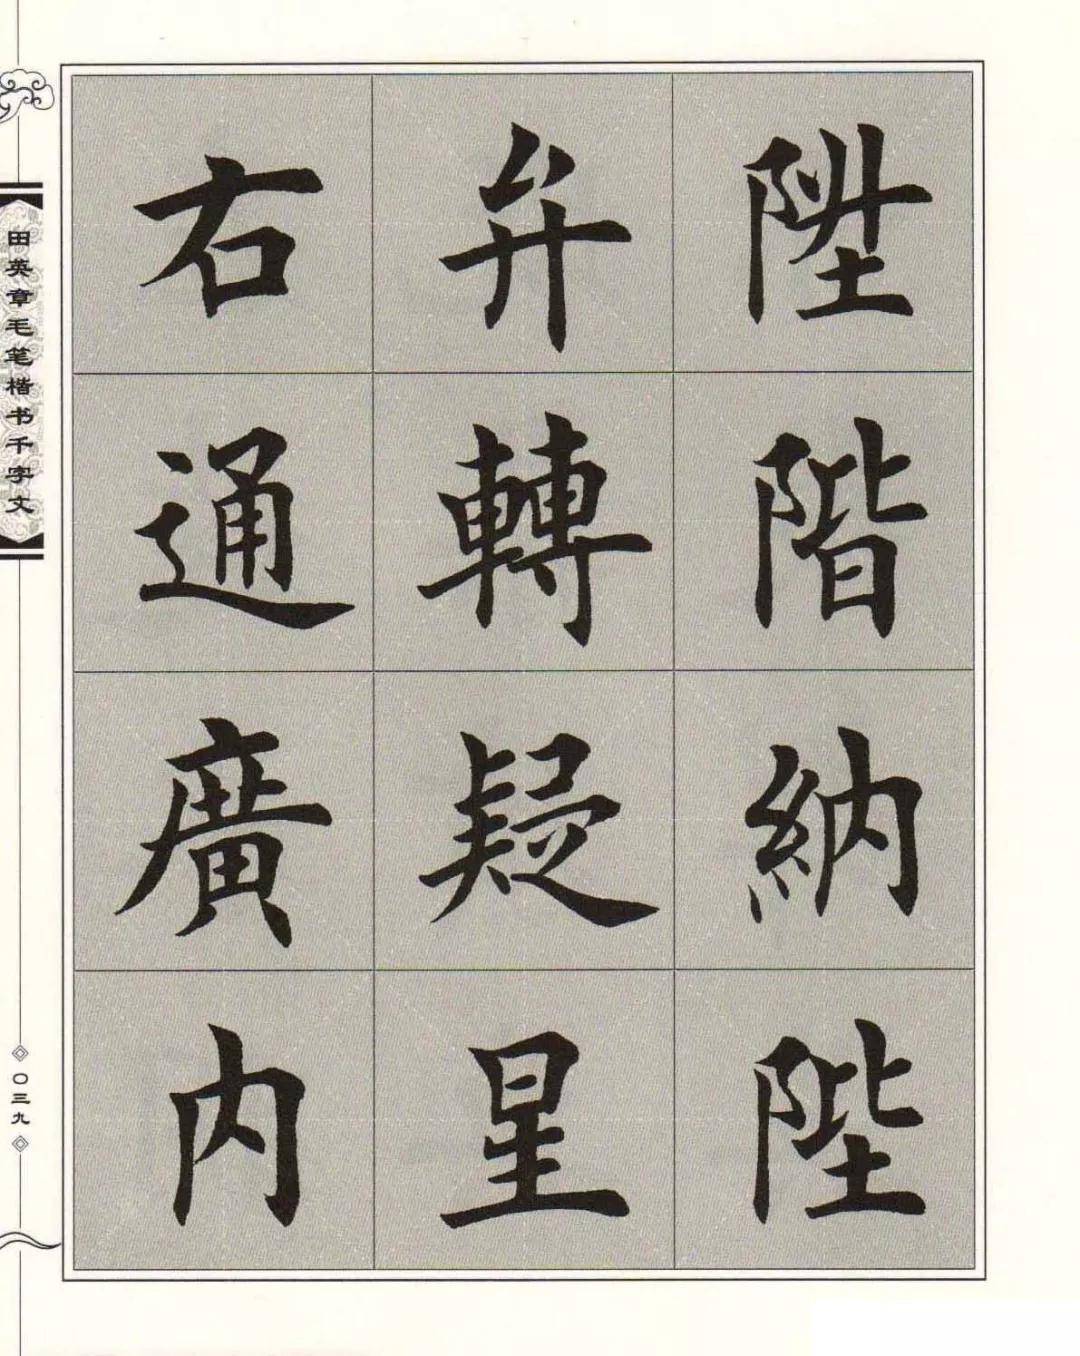 陞階納陛
弁轉疑星
右通廣内
田英章毛笔楷书千字文
〇三九